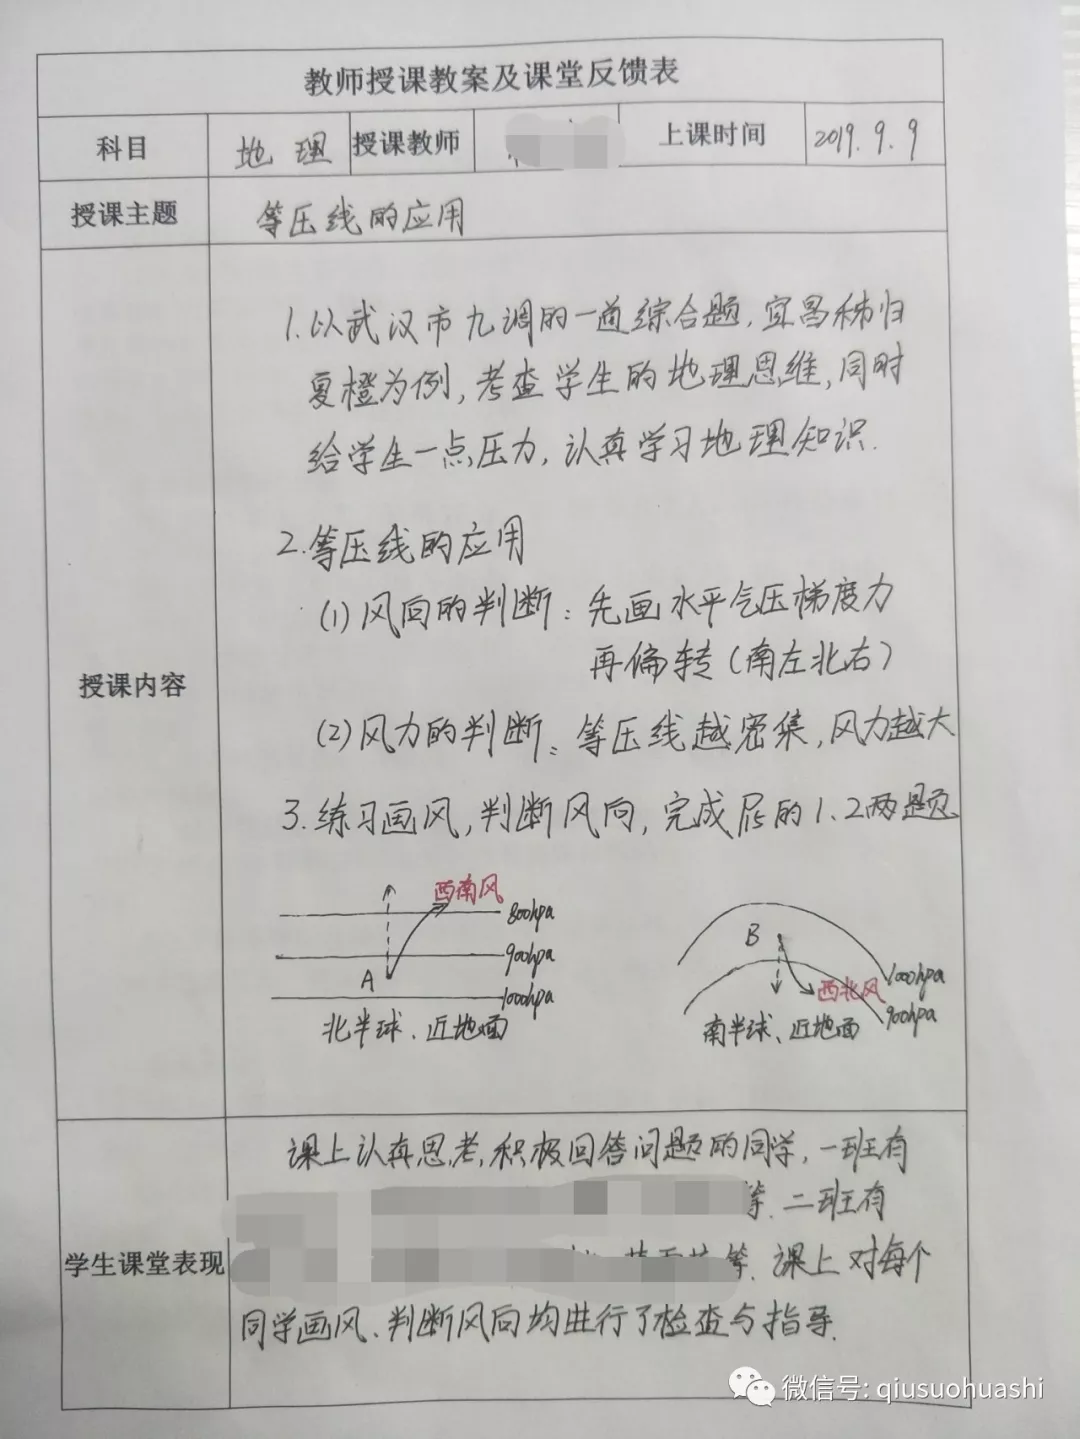 教师授课教案及课堂反馈表
科目 地理 授课教师 上课时间 2019.9.9
授课主题 等压线的应用
授课内容
1.以武汉市九调的一道综合题,宜昌秭归
夏橙为例,考查学生的地理思维,同时
给学生一点压力,认真学习地理知识.
2.等压线的应用
(1)风向的判断:先画水平气压梯度力
再偏转(南左北右)
(2)风力的判断:等压线越密集,风力越大
3.练习画风,判断风向,完成后的1.2两题
西南风
800hpa
900hpa
A
1000hpa
北半球、近地面
B
1000hpa
西北风
900hpa
南半球、近地面
学生课堂表现
课上认真思考,积极回答问题的同学,一班有
等.二班有
等.课上对每个
同学画风、判断风向均进行了检查与指导.
微信号: qiusuohuashi